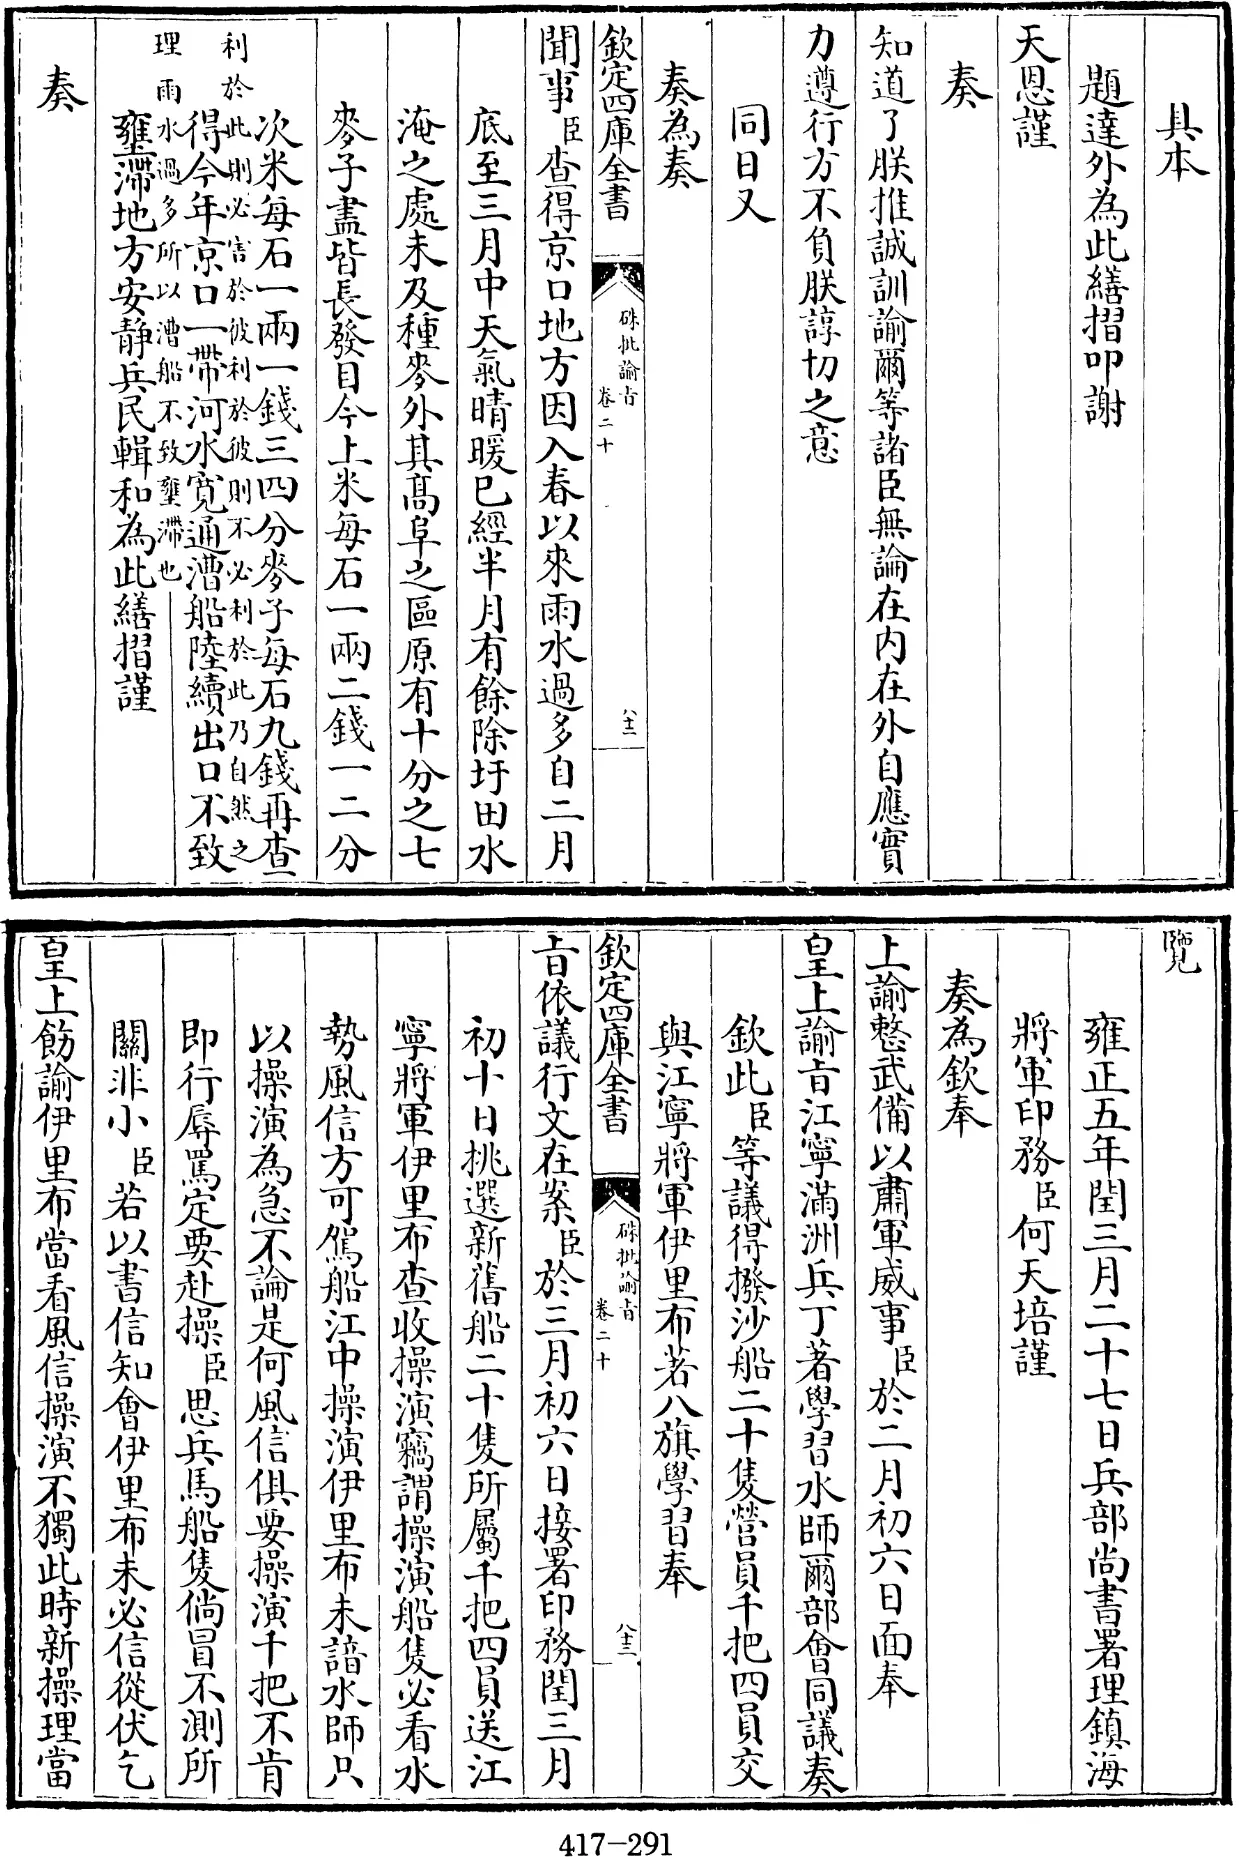 具本
題達外為此繕摺叩謝
天恩謹
奏
知道了朕推誠訓諭爾等諸臣無論在內在外自應實
力遵行方不負朕諄切之意
同日又
奏為奏
欽定四庫全書
硃批諭旨
卷二十
八十二
聞事臣查得京口地方因入春以來雨水過多自二月
底至三月中天氣晴暖已經半月有餘除圩田水
淹之處未及種麥外其高阜之區原有十分之七
麥子盡皆長發目今上米每石一兩二錢一二分
次米每石一兩一錢三四分麥子每石九錢再查
利於此則必害於彼利於彼則不必利於此乃自然之
得今年京口一帶河水寬通漕船陸續出口不致
理雨水過多所以漕船不致壅滯也
壅滯地方安靜兵民輯和為此繕摺謹
奏
覽
雍正五年閏三月二十七日兵部尚書署理鎮海
將軍印務臣何天培謹
奏為欽奉
上諭整武備以肅軍威事臣於二月初六日面奉
皇上諭旨江寧滿洲兵丁著學習水師爾部會同議奏
欽此臣等議得撥沙船二十隻營員千把四員交
與江寧將軍伊里布著八旗學習奉
欽定四庫全書
硃批諭旨
卷二十
八十三
旨依議行文在案臣於三月初六日接署印務閏三月
初十日挑選新舊船二十隻所屬千把四員送江
寧將軍伊里布查收操演竊謂操演船隻必看水
勢風信方可駕船江中操演伊里布未諳水師只
以操演為急不論是何風信俱要操演千把不肯
即行辱罵定要赴操臣思兵馬船隻倘冒不測所
關非小臣若以書信知會伊里布未必信從伏乞
皇上飭諭伊里布當看風信操演不獨此時新操理當
417-291